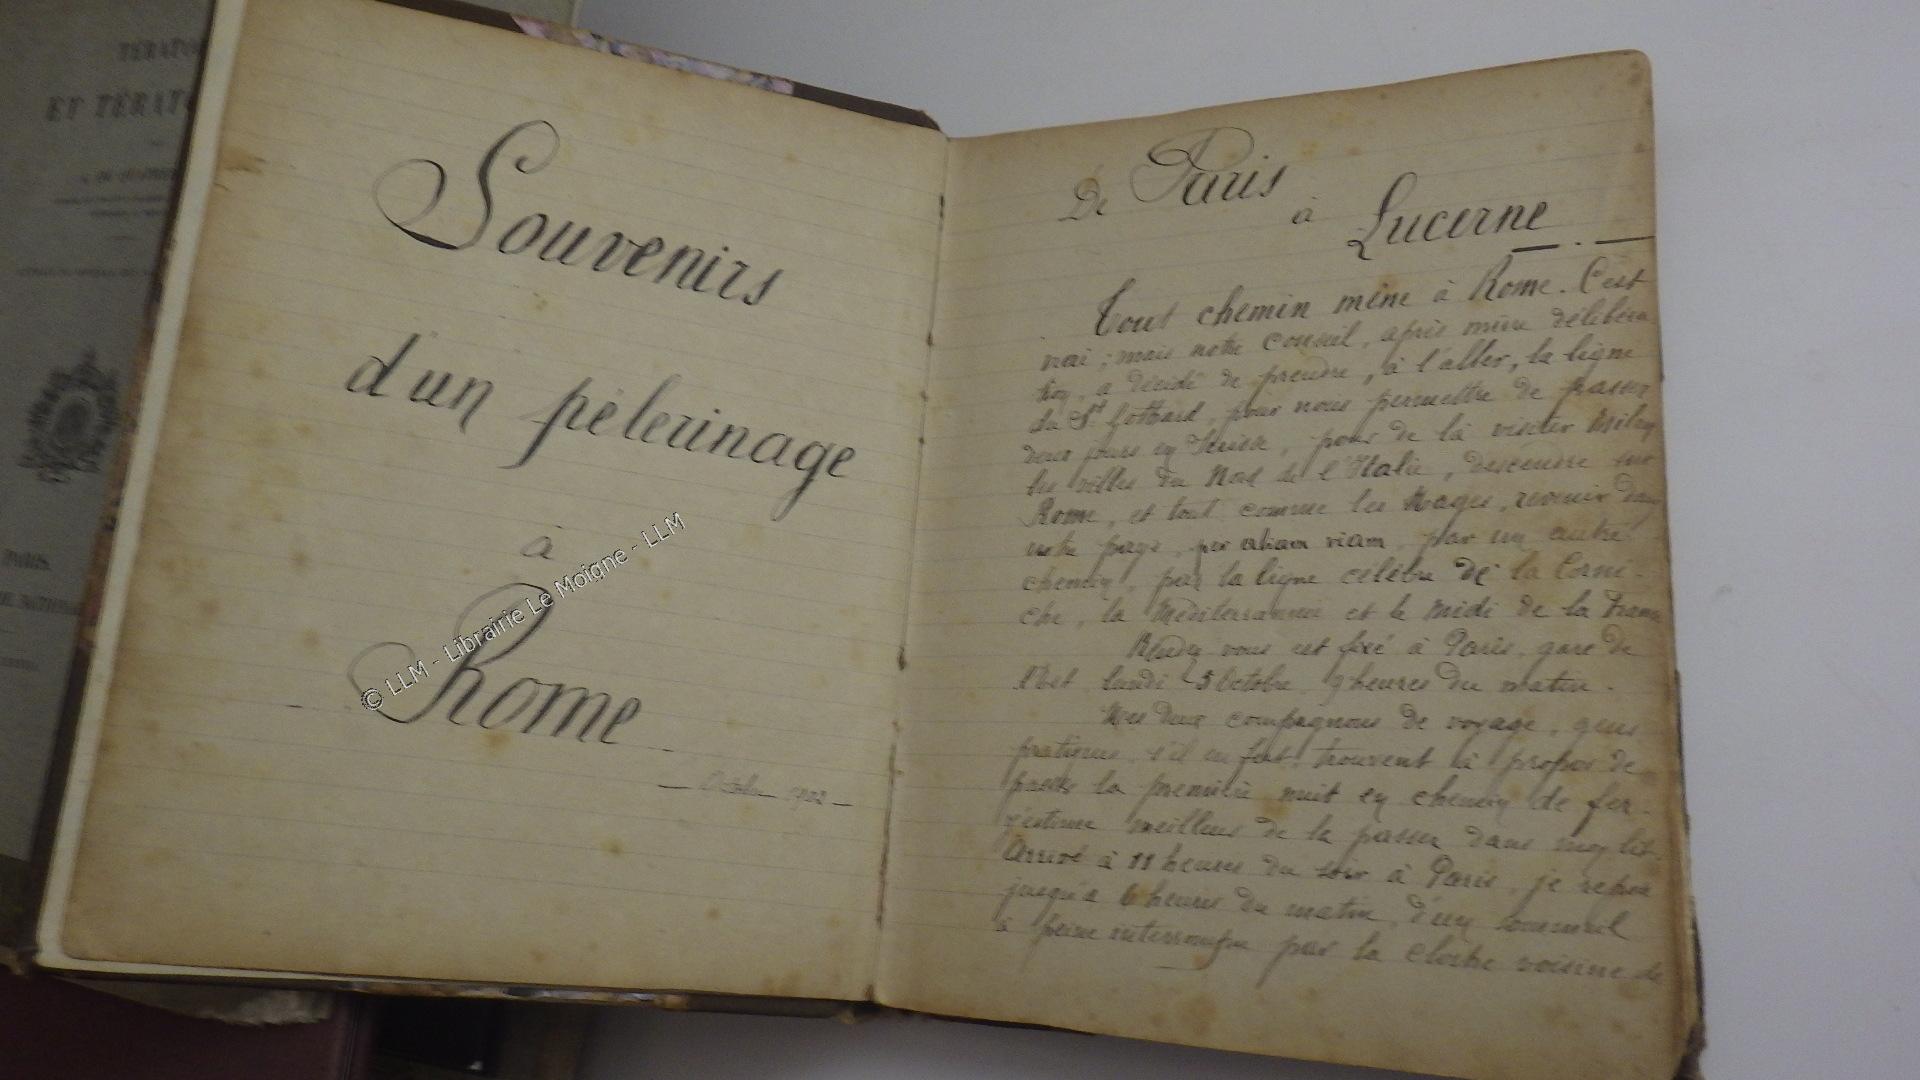 TÉRATO
ET TÉRATO
PARIS
Souvenirs
d'un pélerinage
à
Rome
— Octobre 1902 —
© LLM - Librairie Le Moigne - LLM
De Paris
à Lucerne
Tout chemin mène à Rome. C'est
vrai ; mais notre conseil, après mûre délibéra
tion, a décidé de prendre, à l'aller, la ligne
du St Gothard, pour nous permettre de passer
deux jours en Suisse, pour de là visiter Milan,
les villes du Nord de l'Italie, descendre sur
Rome, et tout comme les Mages, revenir dans
notre pays, per aliam viam, par un autre
chemin, par la ligne célèbre de la Corni-
che, la Méditerranée et le Midi de la France
Rendez vous est fixé à Paris, gare de
l'Est lundi 5 Octobre, 9 heures du matin.
Mes deux compagnons de voyage, gens
pratiques, s'il en fut, trouvent à propos de
passer la première nuit en chemin de fer.
J'estime meilleur de la passer dans mon lit.
Arrivé à 11 heures du soir à Paris, je repose
jusqu'à 6 heures du matin, d'un sommeil
à peine interrompu par la cloche voisine de